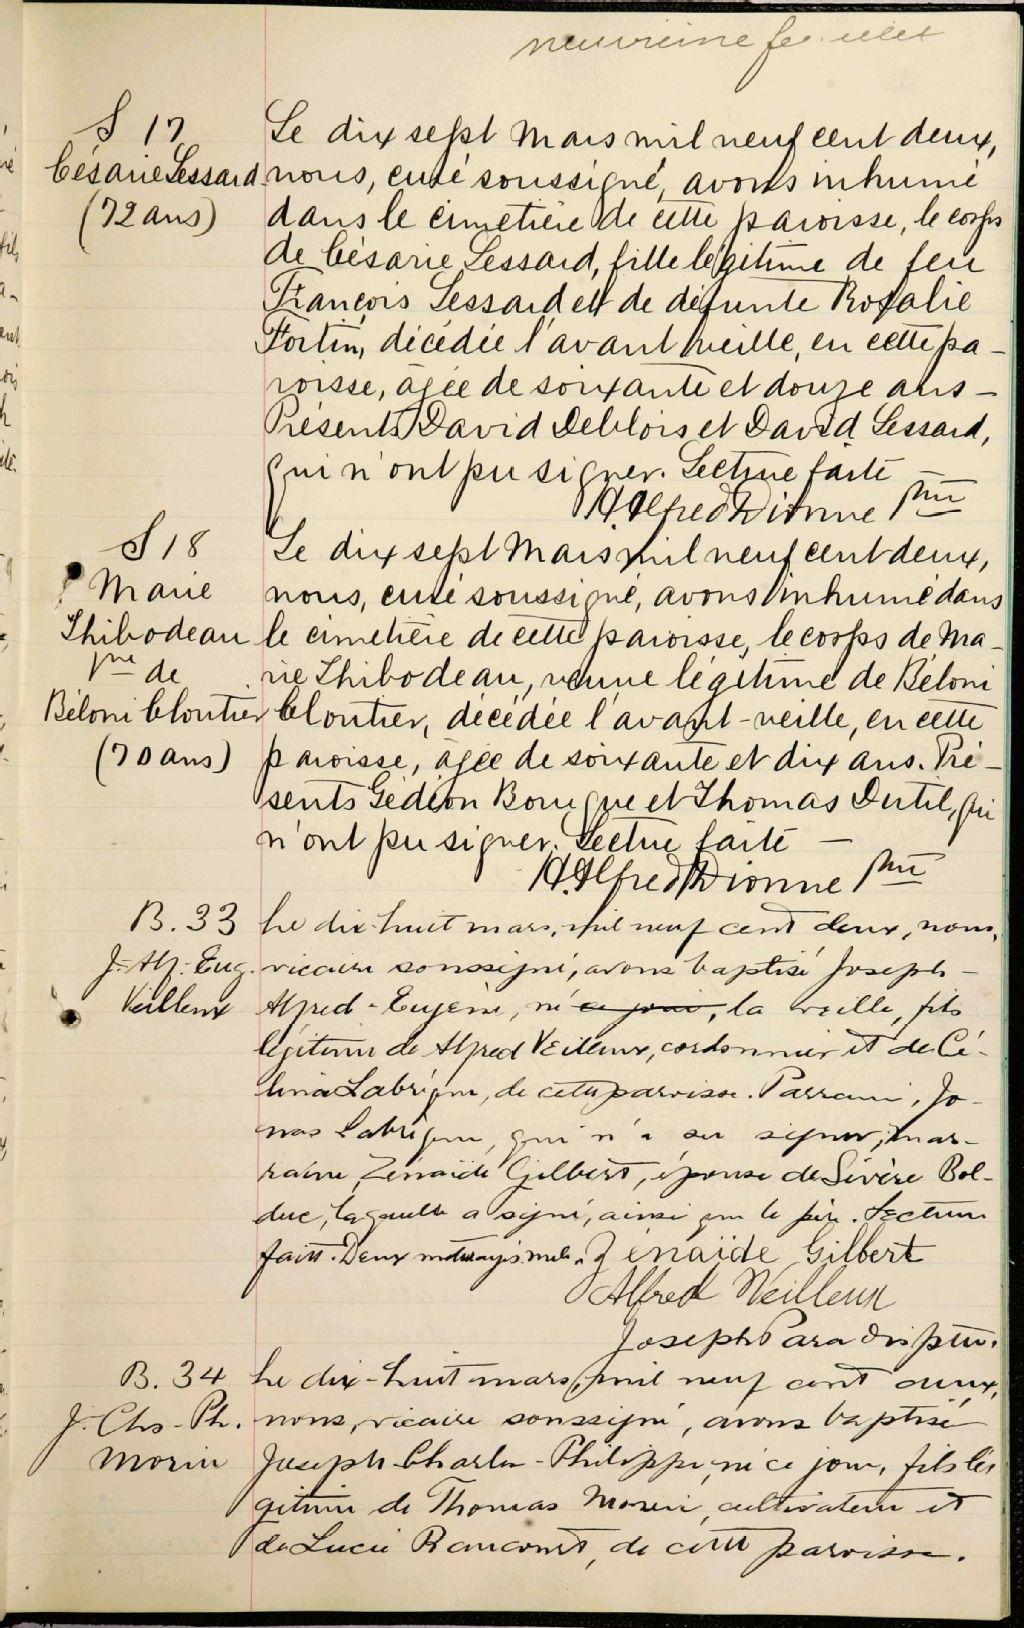 neuvième feuillet
S 17
Césarie Lessard
(72 ans)
Le dix sept Mars mil neuf cent deux,
nous, curé soussigné, avons inhumé
dans le cimetière de cette paroisse, le corps
de Césarie Lessard, fille légitime de feu
François Lessard et de défunte Rosalie
Fortin, décédée l'avant veille, en cette pa-
roisse, âgée de soixante et douze ans -
Présents David Deblois et David Lessard,
qui n'ont pu signer. Lecture faite -
H. Alfred Dionne Ptre
S 18
Marie
Thibodeau
Vve de
Béloni Cloutier
(70 ans)
Le dix sept Mars mil neuf cent deux,
nous, curé soussigné, avons inhumé dans
le cimetière de cette paroisse, le corps de Ma-
rie Thibodeau, veuve légitime de Béloni
Cloutier, décédée l'avant-veille, en cette
paroisse, âgée de soixante et dix ans. Pré-
sents Gédéon Bourque et Thomas Dutil, qui
n'ont pu signer. Lecture faite -
H. Alfred Dionne Ptre
B. 33
J. Alf. Eug.
Veilleux
Le dix-huit mars, mil neuf cent deux, nous,
vicaire soussigné, avons baptisé Joseph-
Alfred-Eugène, né ce jour, la veille, fils
légitime de Alfred Veilleux, cordonnier et de Cé-
lina Labrèque, de cette paroisse. Parrain, Jo-
nas Labrèque, qui n'a su signer, mar-
raine, Zénaïde Gilbert, épouse de Sévère Bol-
duc, laquelle a signé, ainsi que le père. Lecture
faite. Deux mots rayés nuls. Zénaïde Gilbert
Alfred Veilleux
Joseph Paradis ptre.
B. 34
J. Chs-Ph.
Morin
Le dix-huit mars, mil neuf cent deux,
nous, vicaire soussigné, avons baptisé
Joseph-Charles-Philippe, né ce jour, fils lé-
gitime de Thomas Morin, cultivateur et
de Lucie Rancourt, de cette paroisse.